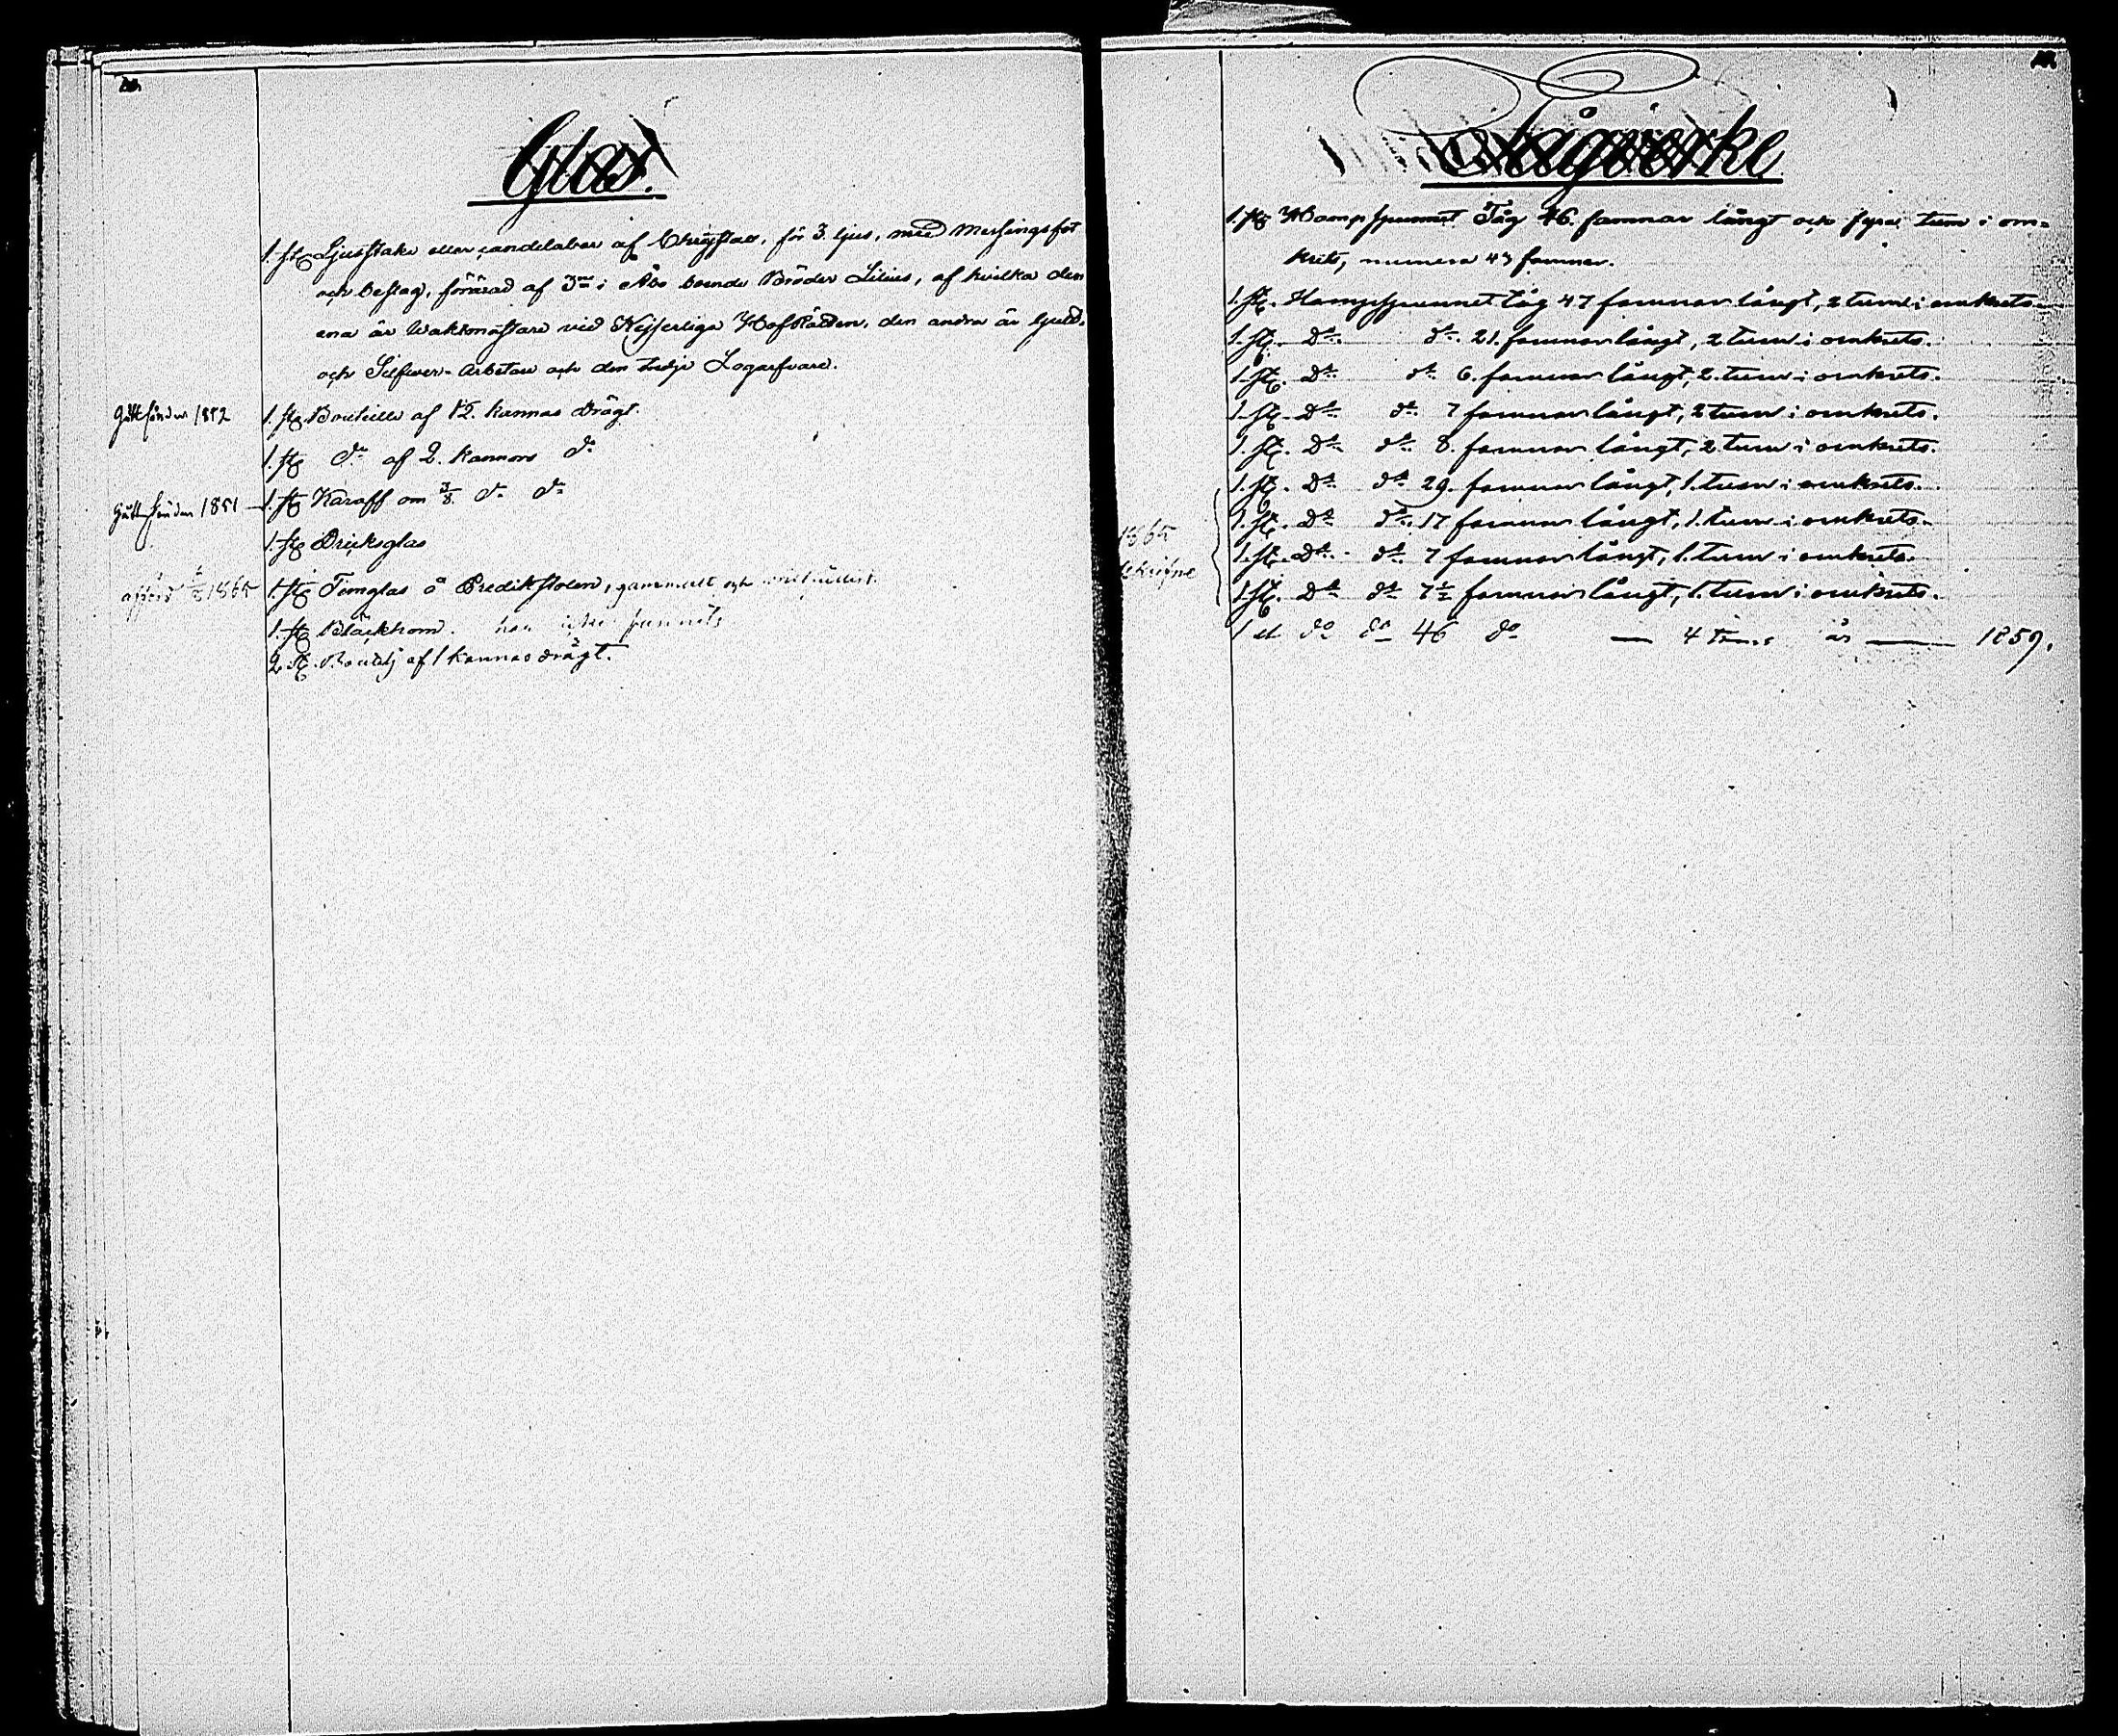 Glas.
1. st. Ljusstake eller candelaber af Chrystall, för 3. ljus, med Messingsfot
och beslag, förärad af 3ne i Åbo boende Bröder Lilius, af hvilka den
ena är Wakkmästare vid Kejserliga HofRätten, den andra är Guld-
och Silfwer-Arbetare och den tredje Logarfvare.
Gått sönder 1852 1. st. Bouteille af 1½. kannas Drägt.
1. st. do af 2. kannors do
Gått sönder 1851 1. st. Karaff om 3/8 do do
1. st. Dricksglas
afförd 1865 1. st. Timglas å Predikstolen, gammalt och
1. st. Bläckhorn. har icke funnits
2 st. Boutelj af 1 kannas drägt.
Tågvärke
1. st. Hampspunnet Tåg 46. famnar långt och fyra tum i om-
krets, numera 43 famnar.
1. st. Hampspunnet tåg 47 famnar långt, 2 tum i omkrets.
1. st. Do do 21. famnar långt, 2 tum i omkrets.
1. st. Do do 6. famnar långt, 2. tum i omkrets.
1. st. Do do 7 famnar långt, 2 tum i omkrets.
1. st. Do do 8. famnar långt, 2. tum i omkrets.
1. st. Do do 29. famnar långt, 1. tum i omkrets.
1865 1. st. Do do 17 famnar långt, 1. tum i omkrets.
1. st. Do do 7 famnar långt, 1. tum i omkrets.
1. st. Do do 7½ famnar långt, 1. tum i omkrets.
1 st do do 46 do — 4 tums år — 1859.